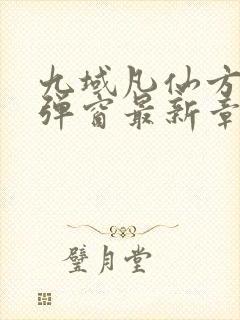 九域凡仙方
弹窗最新章
璧月堂